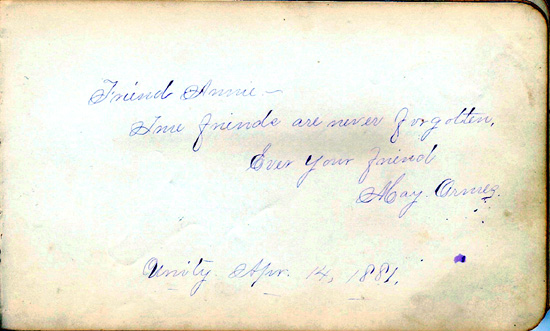 Friend Annie—
True friends are never forgotten.
Ever your friend
May.
Unity Apr. 14, 1881.